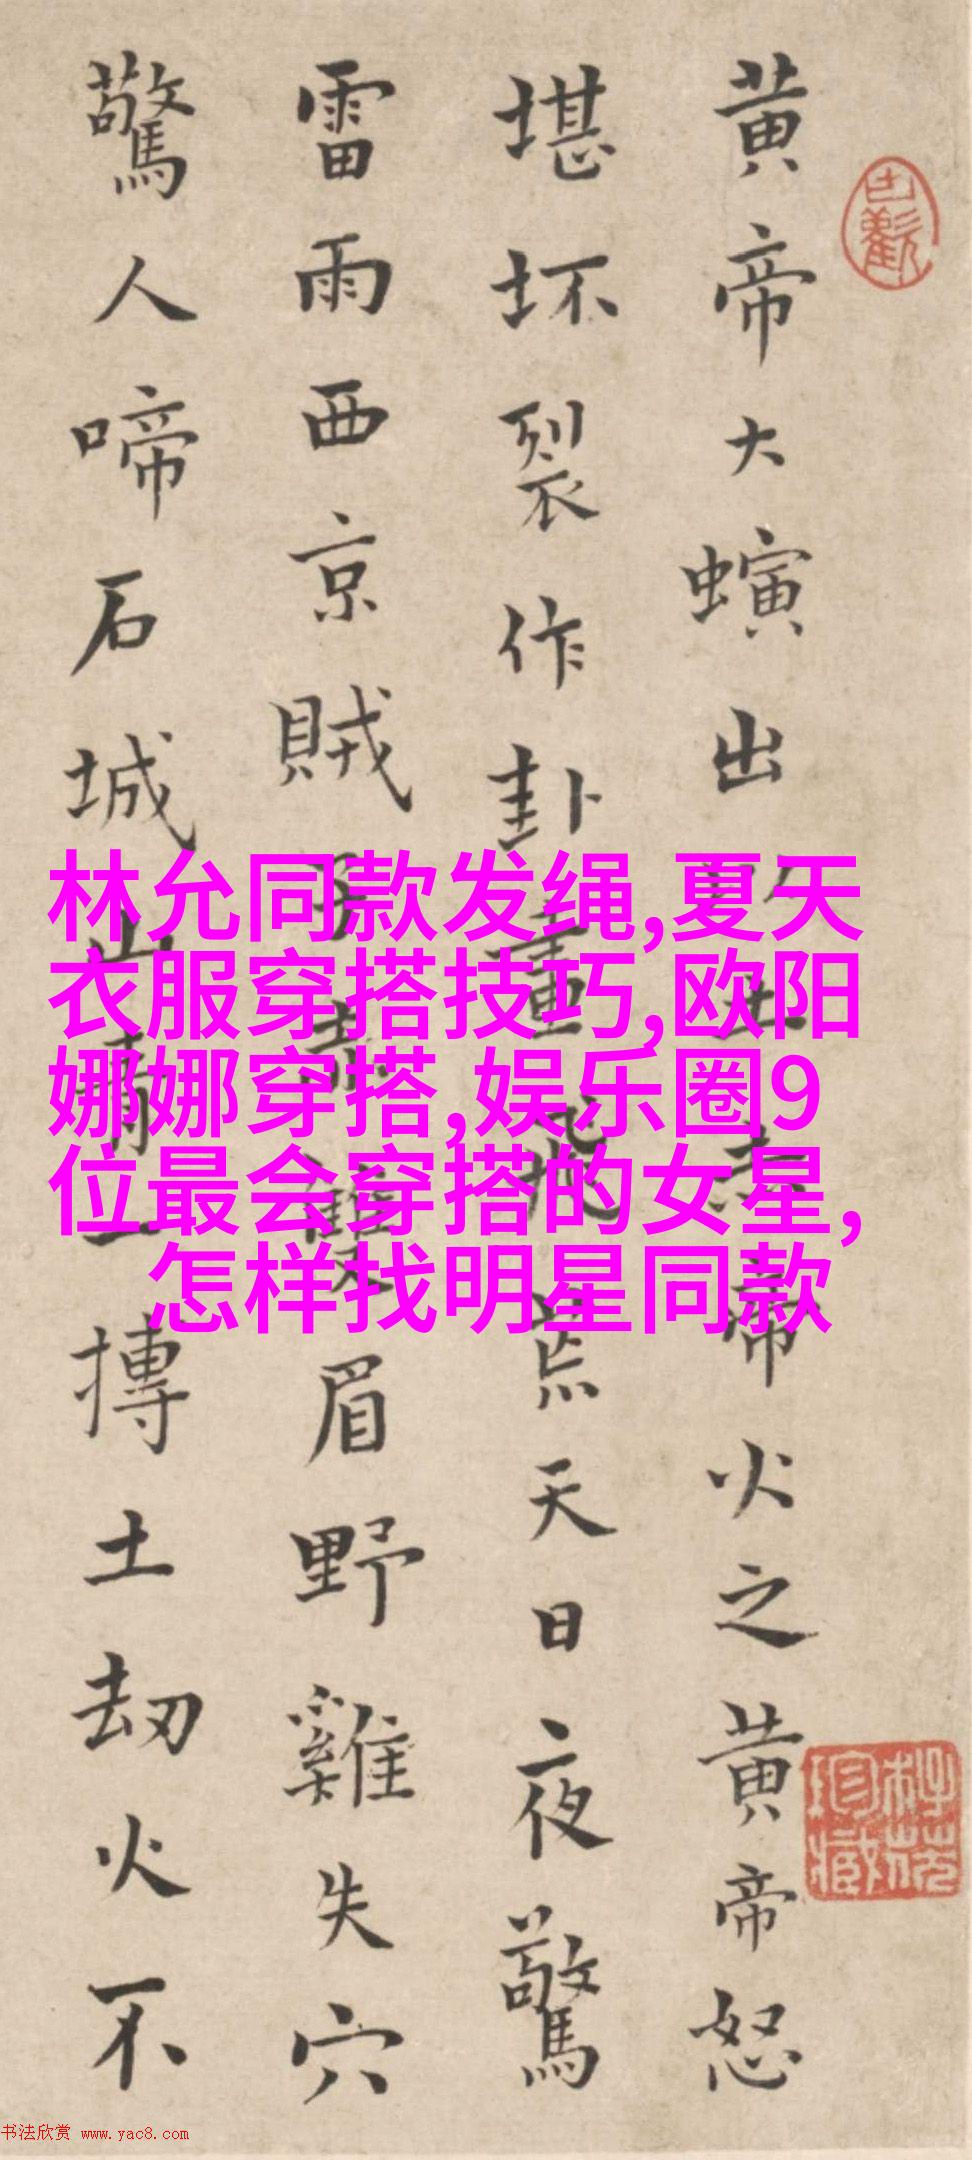 黄帝大螾出土赤帝火之黄帝怒
堪坏裂作卦飛天日夜驚
雷雨西京賊眉野雞失穴
驚人啼石城山青一摶土劫火不
林允同款发绳,夏天
衣服穿搭技巧,欧阳
娜娜穿搭,娱乐圈9
位最会穿搭的女星,
怎样找明星同款
书法欣赏 www.yac8.com